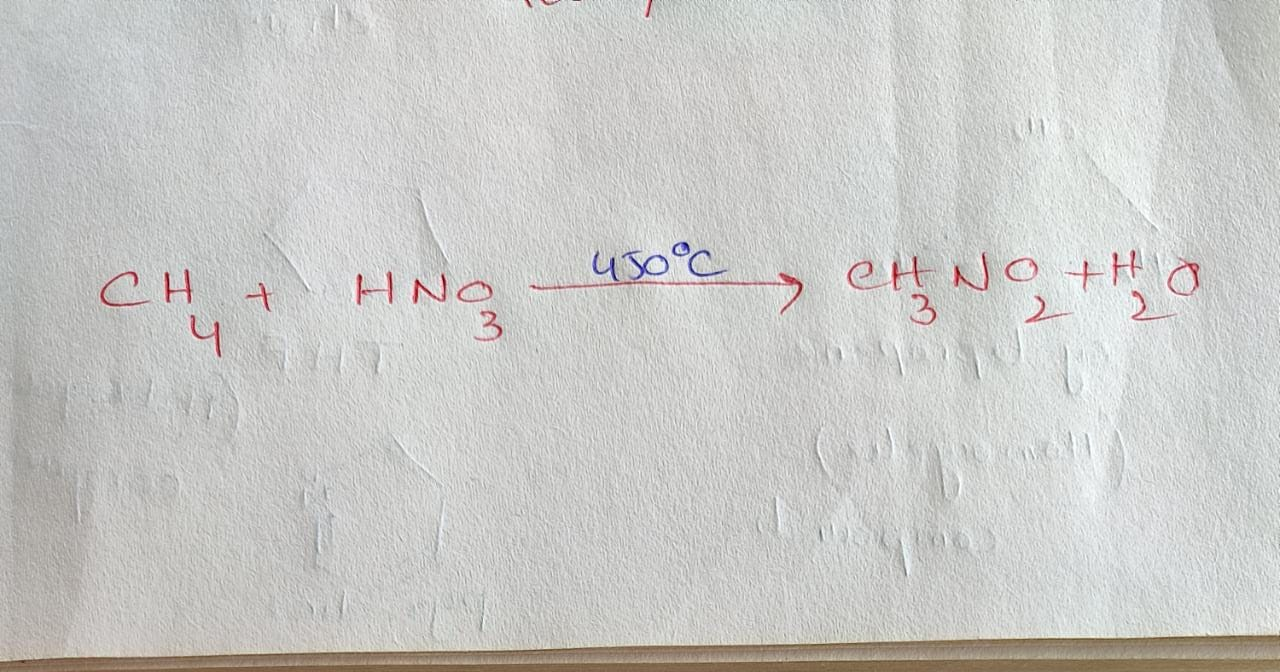 CH₄ + HNO₃ —450°C→ CH₃NO₂ + H₂O